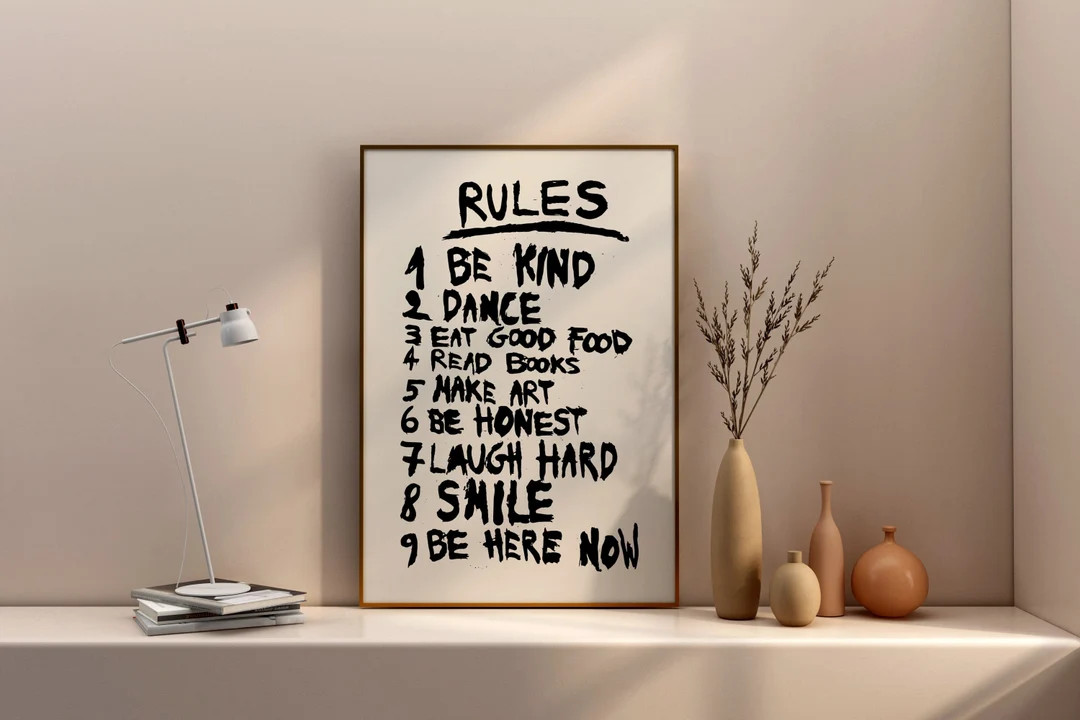 RULES
1 BE KIND
2 DANCE
3 EAT GOOD FOOD
4 READ BOOKS
5 MAKE ART
6 BE HONEST
7 LAUGH HARD
8 SMILE
9 BE HERE NOW